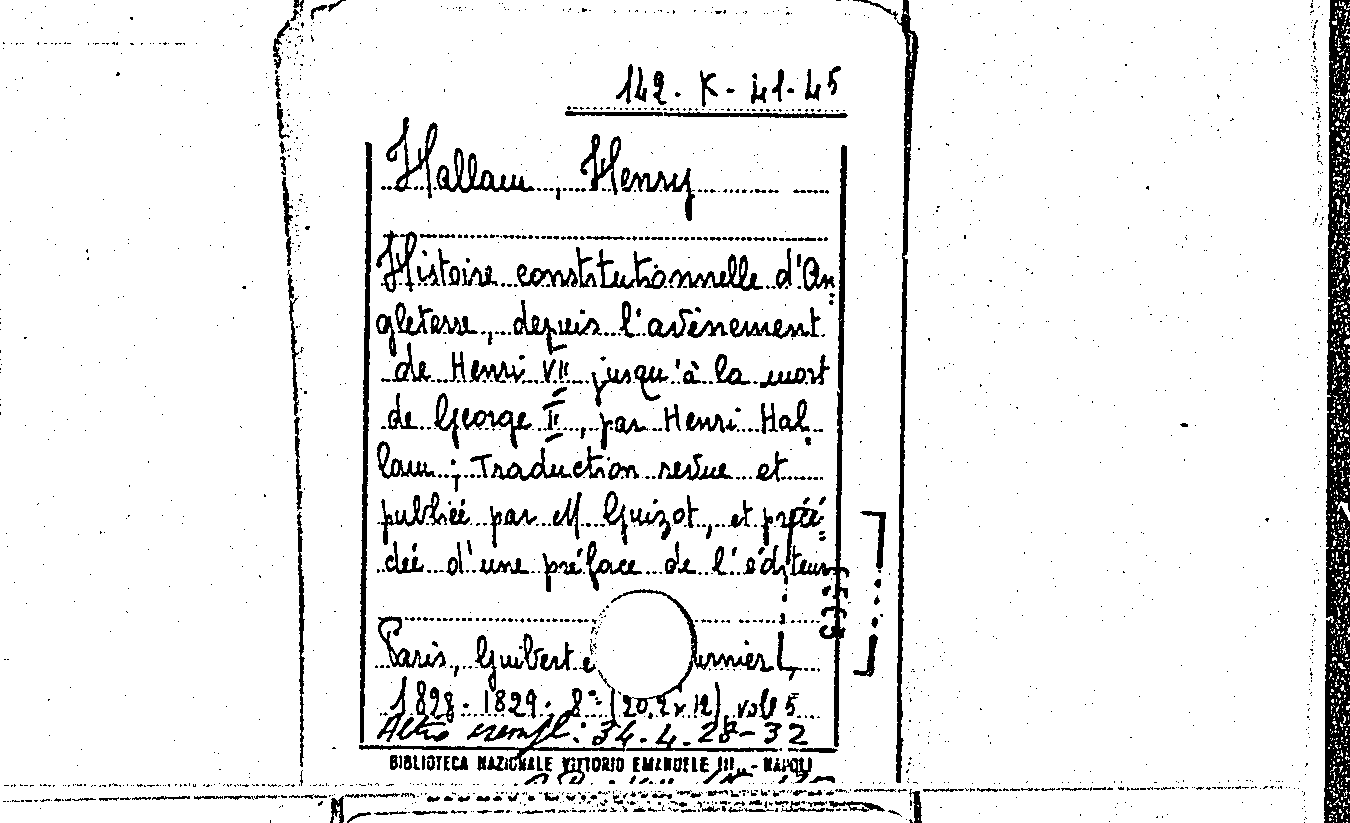 142. K. 41-45
Hallam, Henry
Histoire constitutionnelle d'An=
gleterre, depuis l'avènement
de Henri VII jusqu'à la mort
de George II, par Henri Hal
lam ; Traduction revue et
publiée par M Guizot, et précé=
dée d'une préface de l'éditeur
Paris, Guibert
1828-1829. 8° (20,2x12) vol. 5
Altro esempl: 34.4.28-32
BIBLIOTECA NAZIONALE VITTORIO EMANUELE III - NAPOLI